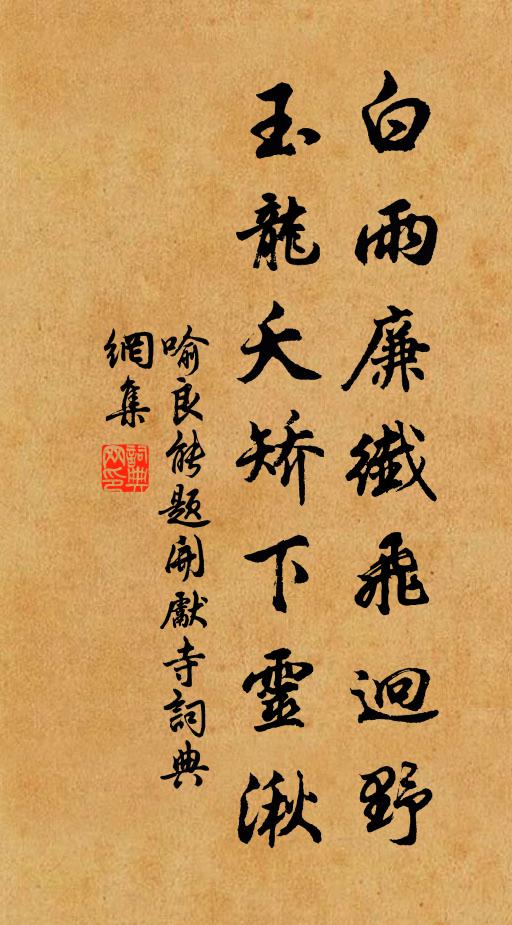 白雨廉纖飛迥野
玉龍夭矯下靈湫
喻良能題開獻寺詞典
網集
詞典
网印